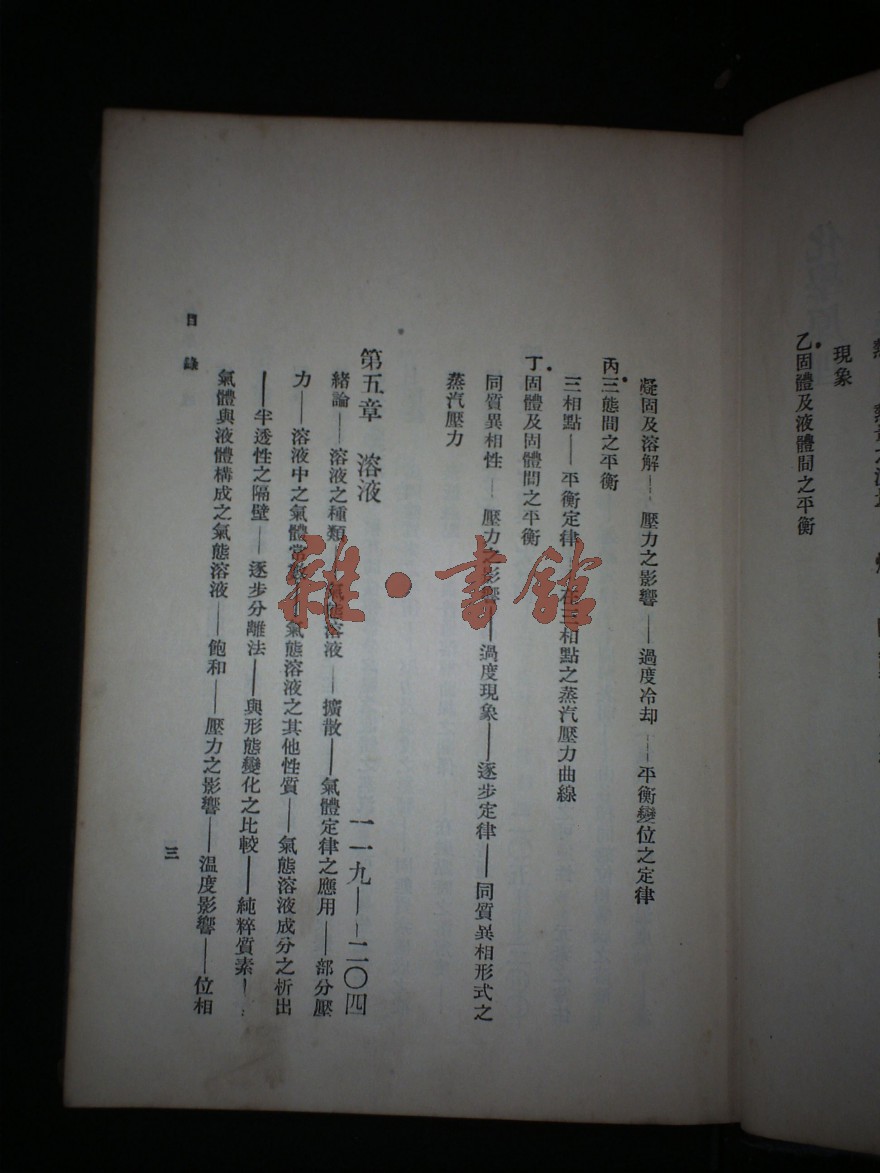 現象
乙固體及液體間之平衡
凝固及溶解——壓力之影響——過度冷却——平衡變位之定律
丙三態間之平衡
三相點——平衡定律 在三相點之蒸汽壓力曲線
丁固體及固體間之平衡
同質異相性——壓力之影響——過度現象——逐步定律——同質異相形式之
蒸汽壓力
第五章 溶液 一一九——二〇四
緒論——溶液之種類 氣態溶液——擴散——氣體定律之應用——部分壓
力——溶液中之氣體常數——氣態溶液之其他性質——氣態溶液成分之析出
——半透性之隔壁——逐步分離法——與形態變化之比較——純粹質素——
氣體與液體構成之氣態溶液——飽和——壓力之影響——溫度影響——位相
目錄
三
雜·書館